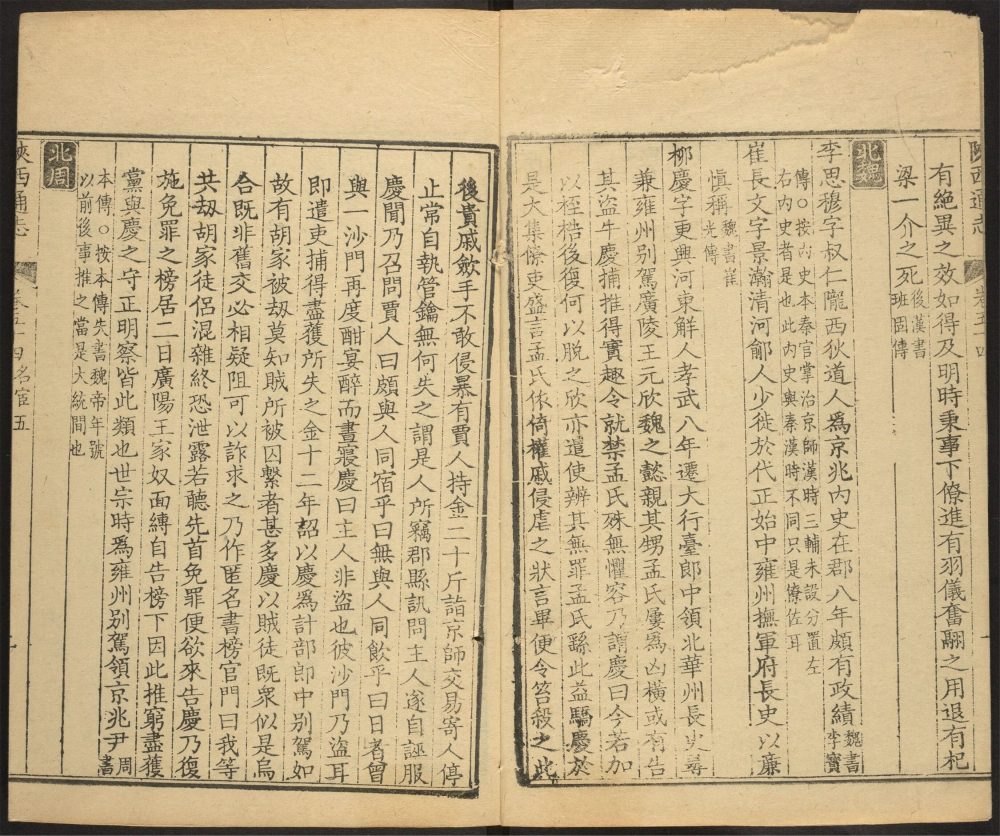 陝西通志
卷五十四
有絶異之效如得及明時秉事下僚進有羽儀奮翮之用退有杞
梁一介之死後漢書班固傳
北魏
李思穆字叔仁隴西狄道人爲京兆內史在郡八年頗有政績魏書李寶
傳○按內史本秦官掌治京師漢時三輔未設分置左
右內史者是也此內史與秦漢時不同只是僚佐耳
崔長文字景瀚清河鄃人少徙於代正始中雍州撫軍府長史以廉
慎稱魏書崔光傳
柳慶字更興河東解人孝武八年遷大行臺郎中領北華州長史尋
兼雍州別駕廣陵王元欣魏之懿親其甥孟氏屢爲凶橫或有告
其盜牛慶捕推得實趣令就禁孟氏殊無懼容乃謂慶曰今若加
以桎梏後復何以脫之欣亦遣使辨其無罪孟氏繇此益驕慶於
是大集僚吏盛言孟氏依倚權戚侵虐之狀言畢便令笞殺之此
後貴戚斂手不敢侵暴有賈人持金二十斤詣京師交易寄人停
止常自執管鑰無何失之謂是人所竊郡縣訊問主人遂自誣服
慶聞乃召問賈人曰頗與人同宿乎曰無與人同飲乎曰日者曾
與一沙門再度酣宴醉而晝寢慶曰主人非盜也彼沙門乃盜耳
即遣吏捕得盡獲所失之金十二年詔以慶爲計部郎中別駕如
故有胡家被劫莫知賊所被囚繫者甚多慶以賊徒既衆似是烏
合既非舊交必相疑阻可以詐求之乃作匿名書榜官門曰我等
共劫胡家徒侶混雜終恐泄露若聽先首免罪便欲來告慶乃復
施免罪之榜居二日廣陽王家奴面縛自告榜下因此推窮盡獲
黨與慶之守正明察皆此類也世宗時爲雍州別駕領京兆尹周書
本傳○按本傳失書魏帝年號
以前後事推之當是大統間也
北周
陝西通志
卷五十四名宦五